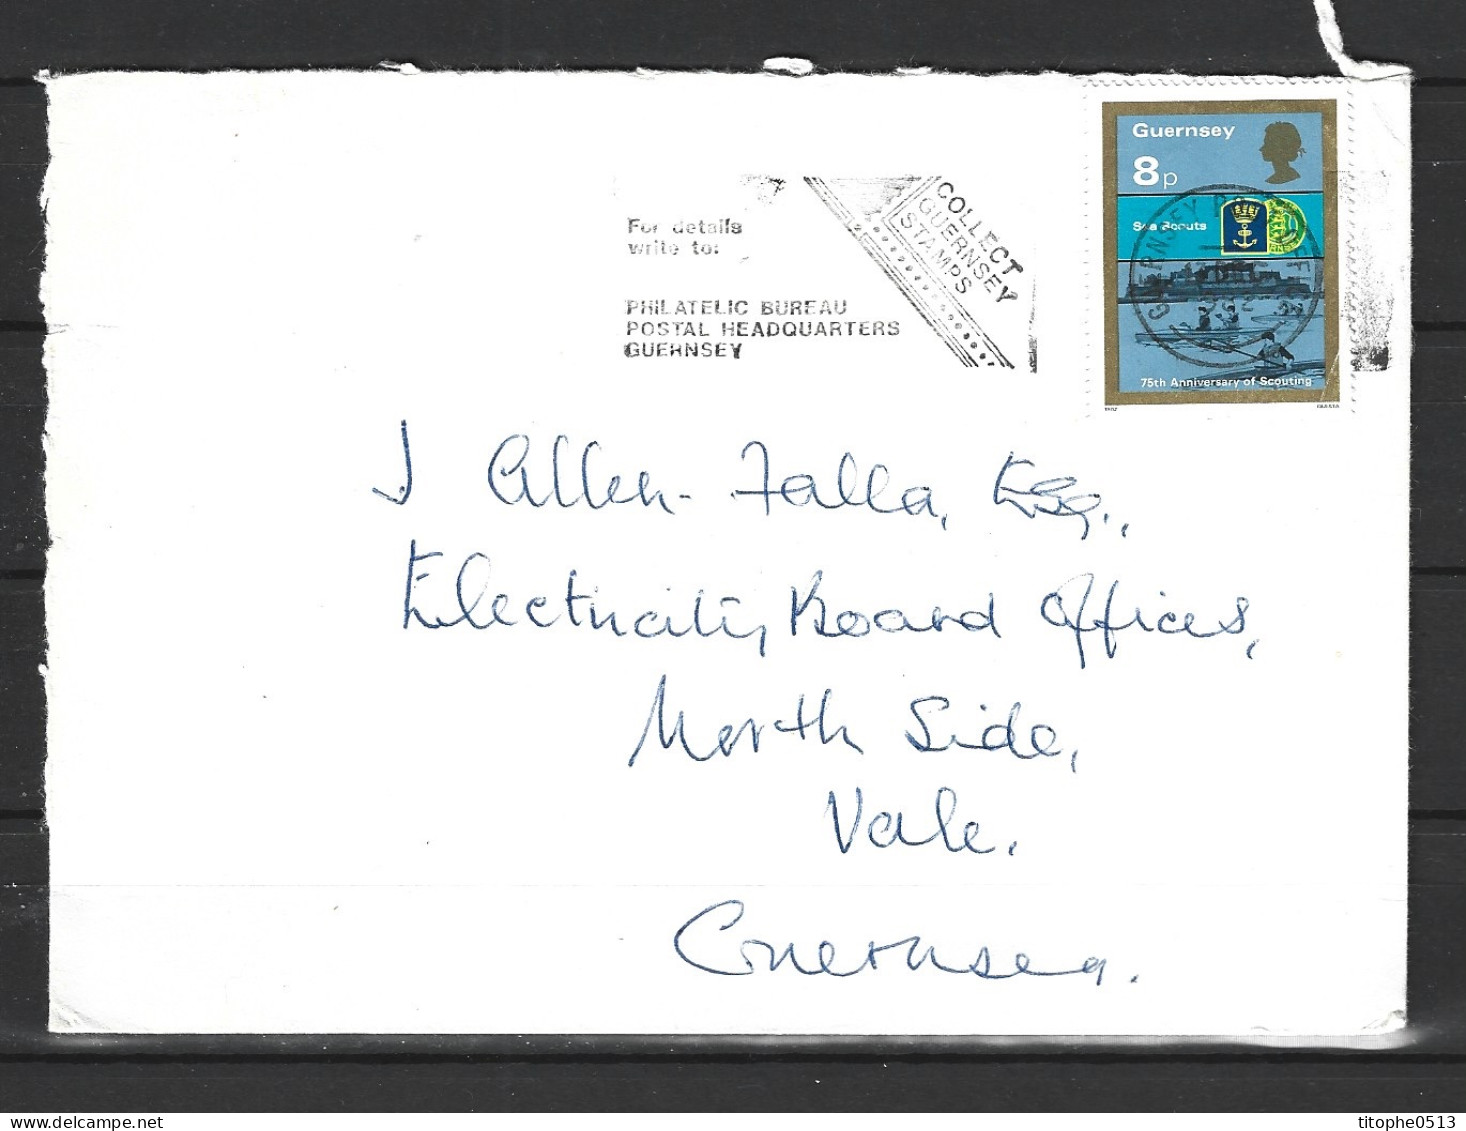 For details
write to:
PHILATELIC BUREAU
POSTAL HEADQUARTERS
GUERNSEY
COLLECT
GUERNSEY
STAMPS
Guernsey
8p
Sea Scouts
75th Anniversary of Scouting
J Allen-Falla, Esq.,
Electricity Board Offices,
North Side,
Vale.
Guernsey.
titophe0513